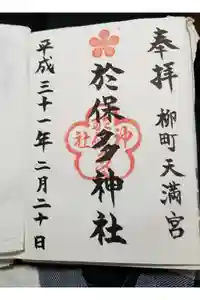 奉拝
柳町天満宮
於保多神社
平成三十一年二月二十日